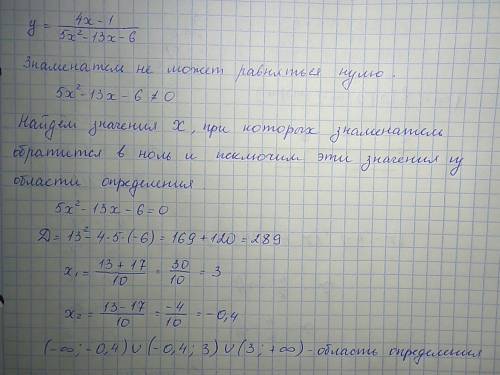 y = (4x - 1)/(5x² - 13x - 6)
Знаменатель не может равняться нулю.
5x² - 13x - 6 ≠ 0
Найдем значения x, при которых знаменатель
обратится в ноль и исключим эти значения из
области определения.
5x² - 13x - 6 = 0
D = 13² - 4·5·(-6) = 169 + 120 = 289
x₁ = (13 + 17)/10 = 30/10 = 3
x₂ = (13 - 17)/10 = -4/10 = -0,4
(-∞; -0,4) ∪ (-0,4; 3) ∪ (3; +∞) - область определения